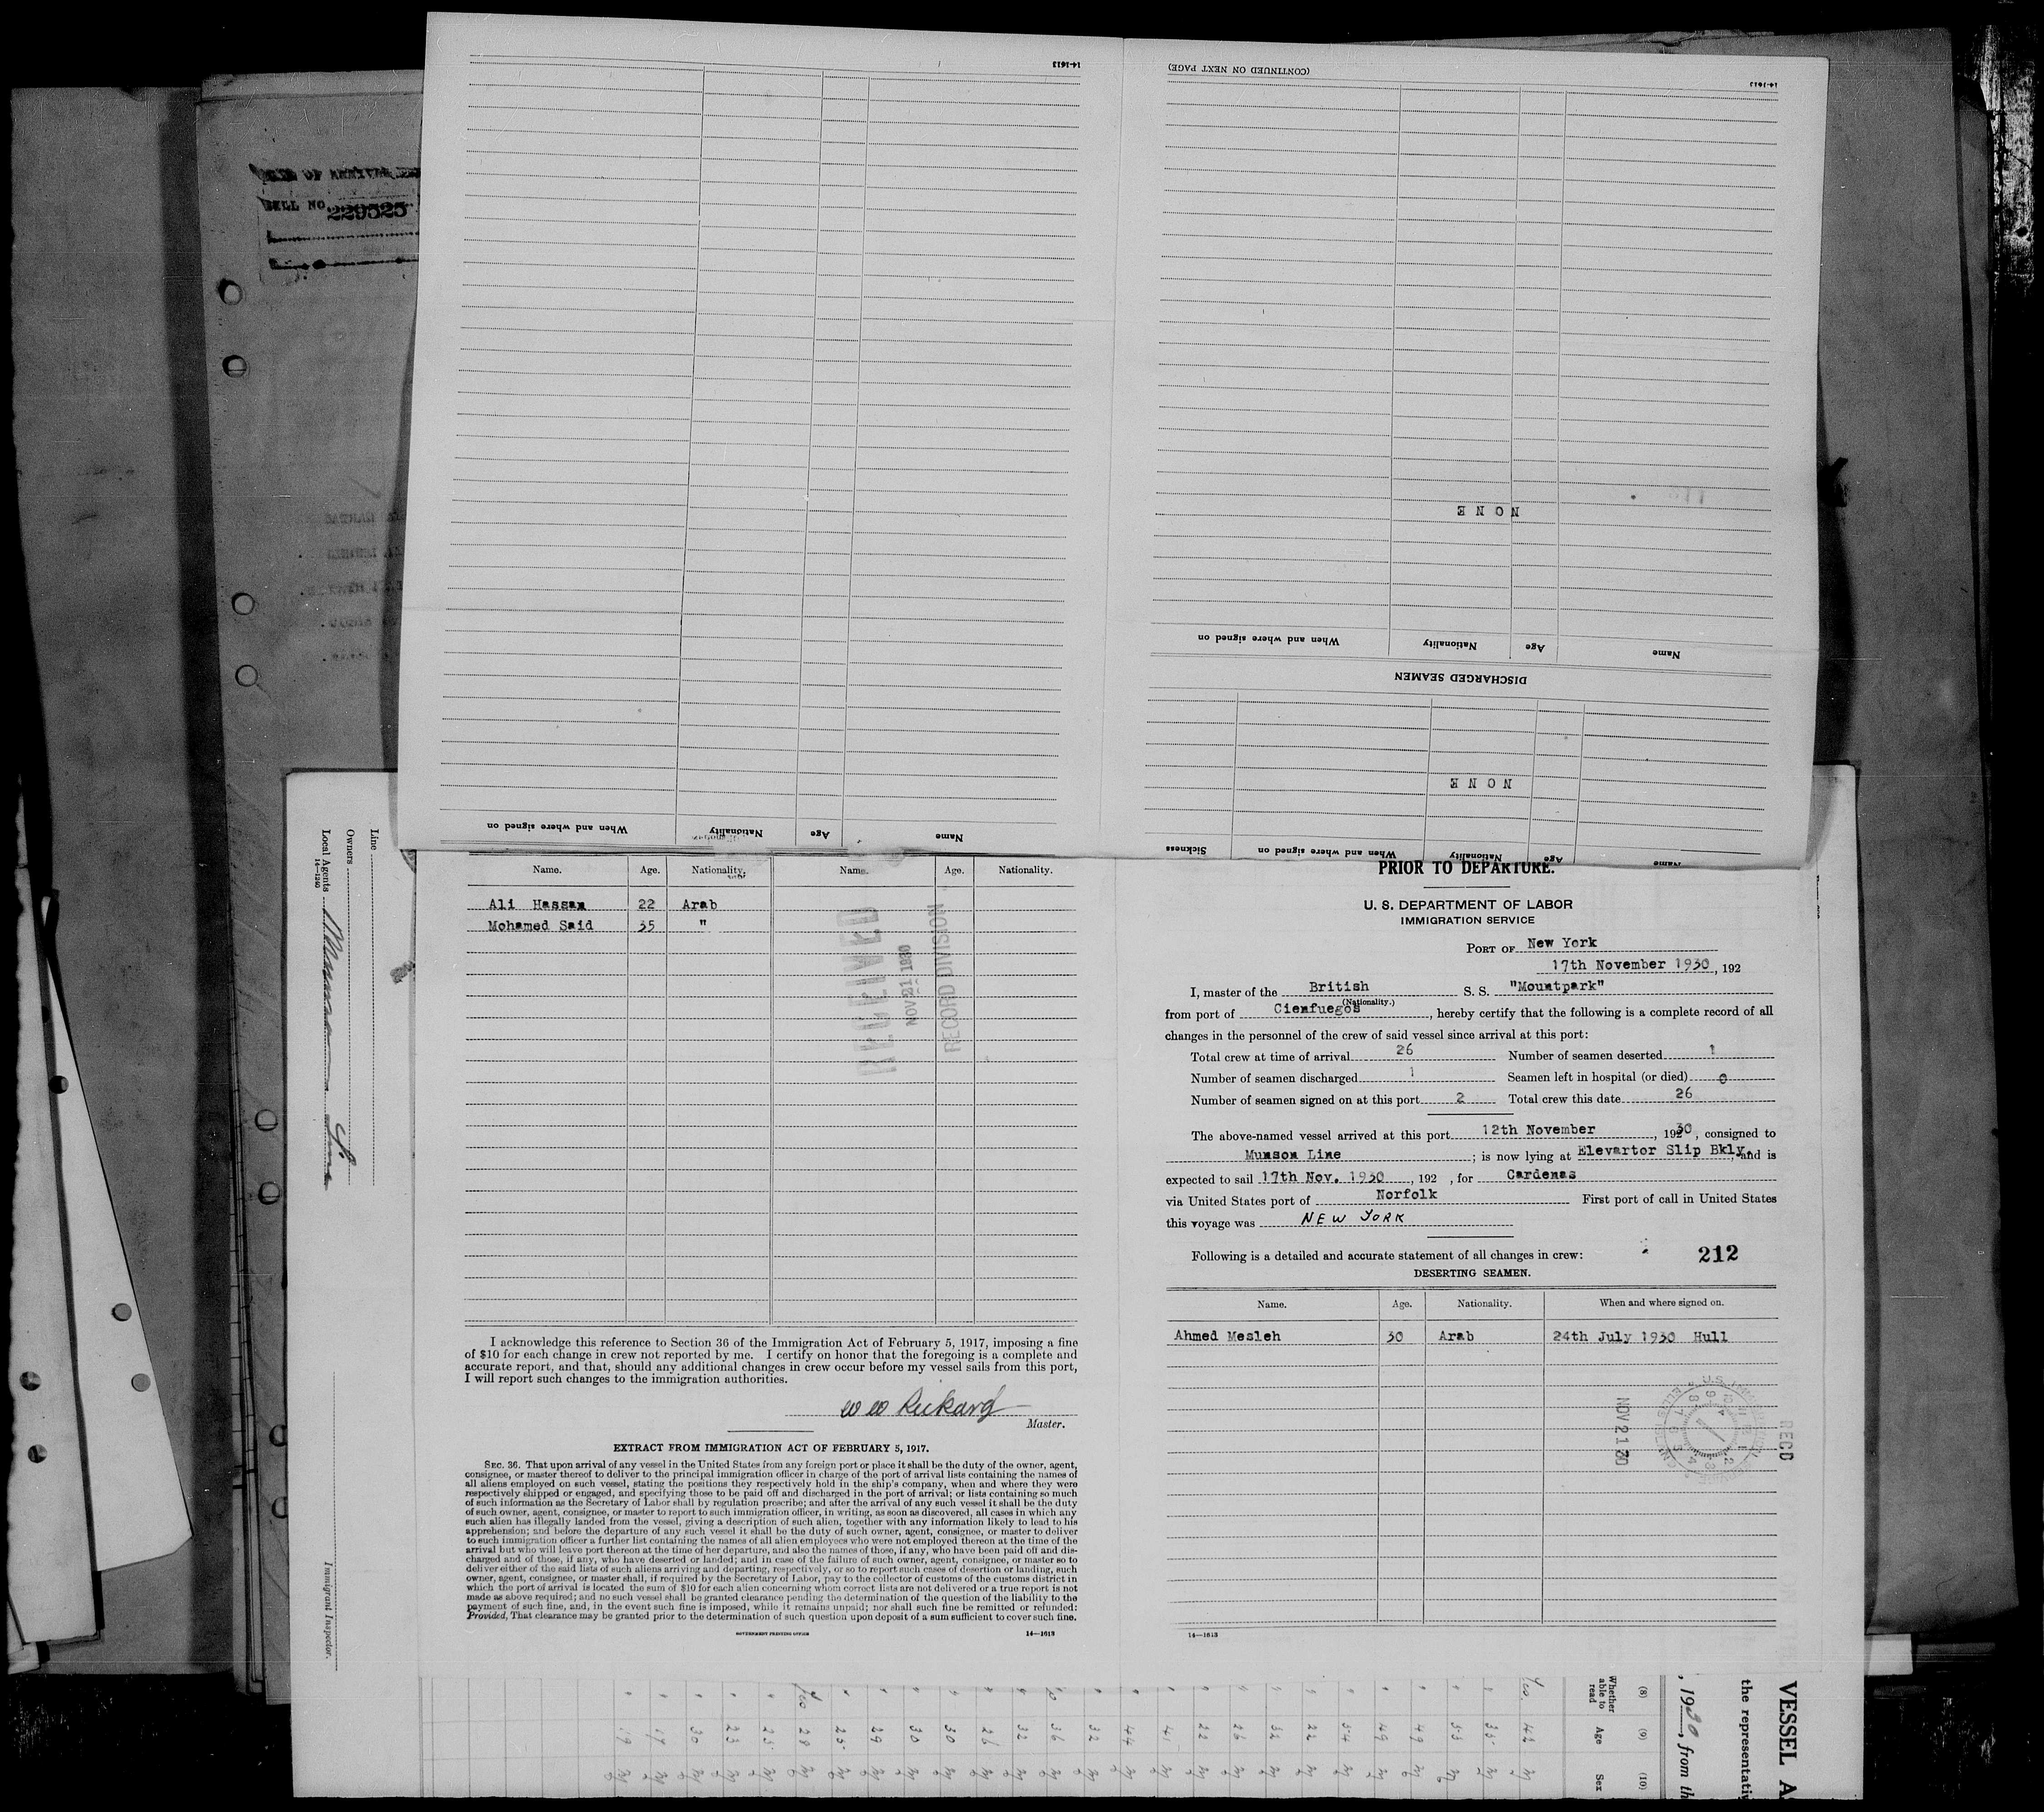 14-1613
(CONTINUED ON NEXT PAGE)
14-1613
BILL NO. 229525
NONE
When and where signed on
Nationality
Age
Name
DISCHARGED SEAMEN
NONE
When and where signed on
Nationality
Age
Name
Sickness
When and where signed on
Nationality
Age
Name
Line
Owners
Local Agents Munson Line
14-1240
Immigrant Inspector.
Name. Age. Nationality. Name. Age. Nationality.
Ali Hassan 22 Arab
Mohamed Said 35 "
RECEIVED
NOV 21 1930
RECORD DIVISION
I acknowledge this reference to Section 36 of the Immigration Act of February 5, 1917, imposing a fine
of $10 for each change in crew not reported by me. I certify on honor that the foregoing is a complete and
accurate report, and that, should any additional changes in crew occur before my vessel sails from this port,
I will report such changes to the immigration authorities.
W W Rickard
Master.
EXTRACT FROM IMMIGRATION ACT OF FEBRUARY 5, 1917.
SEC. 36. That upon arrival of any vessel in the United States from any foreign port or place it shall be the duty of the owner, agent,
consignee, or master thereof to deliver to the principal immigration officer in charge of the port of arrival lists containing the names of
all aliens employed on such vessel, stating the positions they respectively hold in the ship's company, when and where they were
respectively shipped or engaged, and specifying those to be paid off and discharged in the port of arrival; or lists containing so much
of such information as the Secretary of Labor shall by regulation prescribe; and after the arrival of any such vessel it shall be the duty
of such owner, agent, consignee, or master to report to such immigration officer, in writing, as soon as discovered, all cases in which any
such alien has illegally landed from the vessel, giving a description of such alien, together with any information likely to lead to his
apprehension; and before the departure of any such vessel it shall be the duty of such owner, agent, consignee, or master to deliver
to such immigration officer a further list containing the names of all alien employees who were not employed thereon at the time of the
arrival but who will leave port thereon at the time of her departure, and also the names of those, if any, who have been paid off and dis-
charged and of those, if any, who have deserted or landed; and in case of the failure of such owner, agent, consignee, or master so to
deliver either of the said lists of such aliens arriving and departing, respectively, or so to report such cases of desertion or landing, such
owner, agent, consignee, or master shall, if required by the Secretary of Labor, pay to the collector of customs of the customs district in
which the port of arrival is located the sum of $10 for each alien concerning whom correct lists are not delivered or a true report is not
made as above required; and no such vessel shall be granted clearance pending the determination of the question of the liability to the
payment of such fine, and, in the event such fine is imposed, while it remains unpaid; nor shall such fine be remitted or refunded:
Provided, That clearance may be granted prior to the determination of such question upon deposit of a sum sufficient to cover such fine.
GOVERNMENT PRINTING OFFICE 14—1613
PRIOR TO DEPARTURE.
U. S. DEPARTMENT OF LABOR
IMMIGRATION SERVICE
PORT OF New York
17th November 1930, 192
I, master of the British S. S. "Mountpark"
(Nationality.)
from port of Cienfuegos, hereby certify that the following is a complete record of all
changes in the personnel of the crew of said vessel since arrival at this port:
Total crew at time of arrival 26 Number of seamen deserted 1
Number of seamen discharged 1 Seamen left in hospital (or died) 0
Number of seamen signed on at this port 2 Total crew this date 26
The above-named vessel arrived at this port 12th November, 1930, consigned to
Munson Line; is now lying at Elevartor Slip Bkly. and is
expected to sail 17th Nov. 1930, 192 , for Cardenas
via United States port of Norfolk First port of call in United States
this voyage was NEW YORK
Following is a detailed and accurate statement of all changes in crew: 212
DESERTING SEAMEN.
Name. Age. Nationality. When and where signed on.
Ahmed Mesleh 30 Arab 24th July 1930 Hull
NOV 21 30
RECD
14—1613
VESSEL
the representativ
, 1930, from th
(8) (9) (10)
Whether able to read Age Sex
Yes. 42
35
53
49
49
54
22
32
26
22
41
44
32
36
32
26
30
30
29
25
Yes 28
25
23
30
17
19